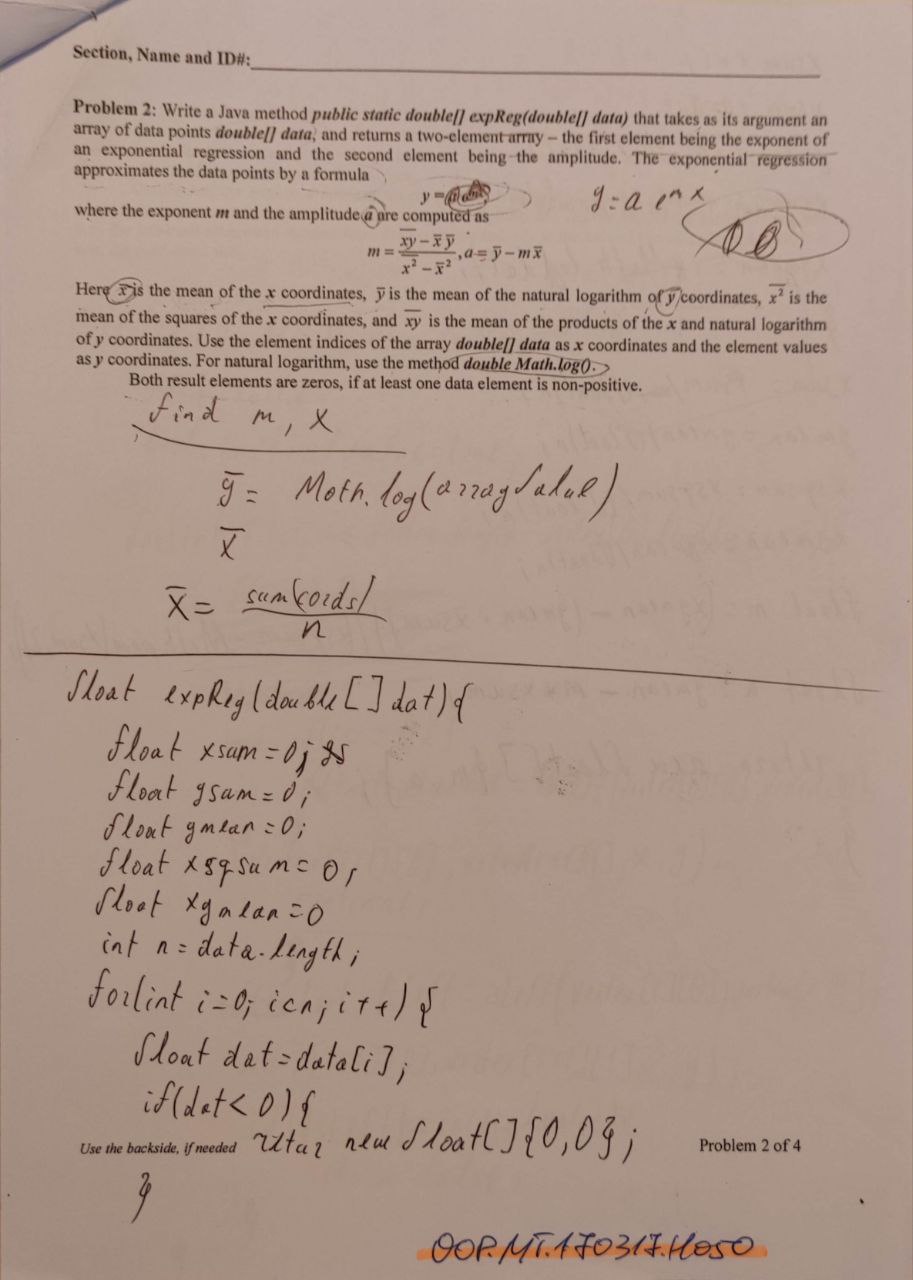 Section, Name and ID#:
Problem 2: Write a Java method public static double[] expReg(double[] data) that takes as its argument an
array of data points double[] data, and returns a two-element array – the first element being the exponent of
an exponential regression and the second element being the amplitude. The exponential regression
approximates the data points by a formula
y =
y = a e^mx
where the exponent m and the amplitude a are computed as
m = (x̅y̅ – x̅ y̅) / (x̅²̅ – x̅²), a = y̅ – m x̅
Here x̅ is the mean of the x coordinates, y̅ is the mean of the natural logarithm of y coordinates, x̅²̅ is the
mean of the squares of the x coordinates, and x̅y̅ is the mean of the products of the x and natural logarithm
of y coordinates. Use the element indices of the array double[] data as x coordinates and the element values
as y coordinates. For natural logarithm, use the method double Math.log().
Both result elements are zeros, if at least one data element is non-positive.
find m, x
y̅ = Math.log(arrayValue)
x̅
x̅ = sum(cords) / n
float expReg(double[] dat){
float xsum=0;
float ysum=0;
float ymean=0;
float xsqsum=0;
float xymean=0
int n=data.length;
for(int i=0; i<n; i++){
float dat=data[i];
if(dat<0){
new float[]{0,0};
Use the backside, if needed
Problem 2 of 4
}
OOP.MT.170317.H050